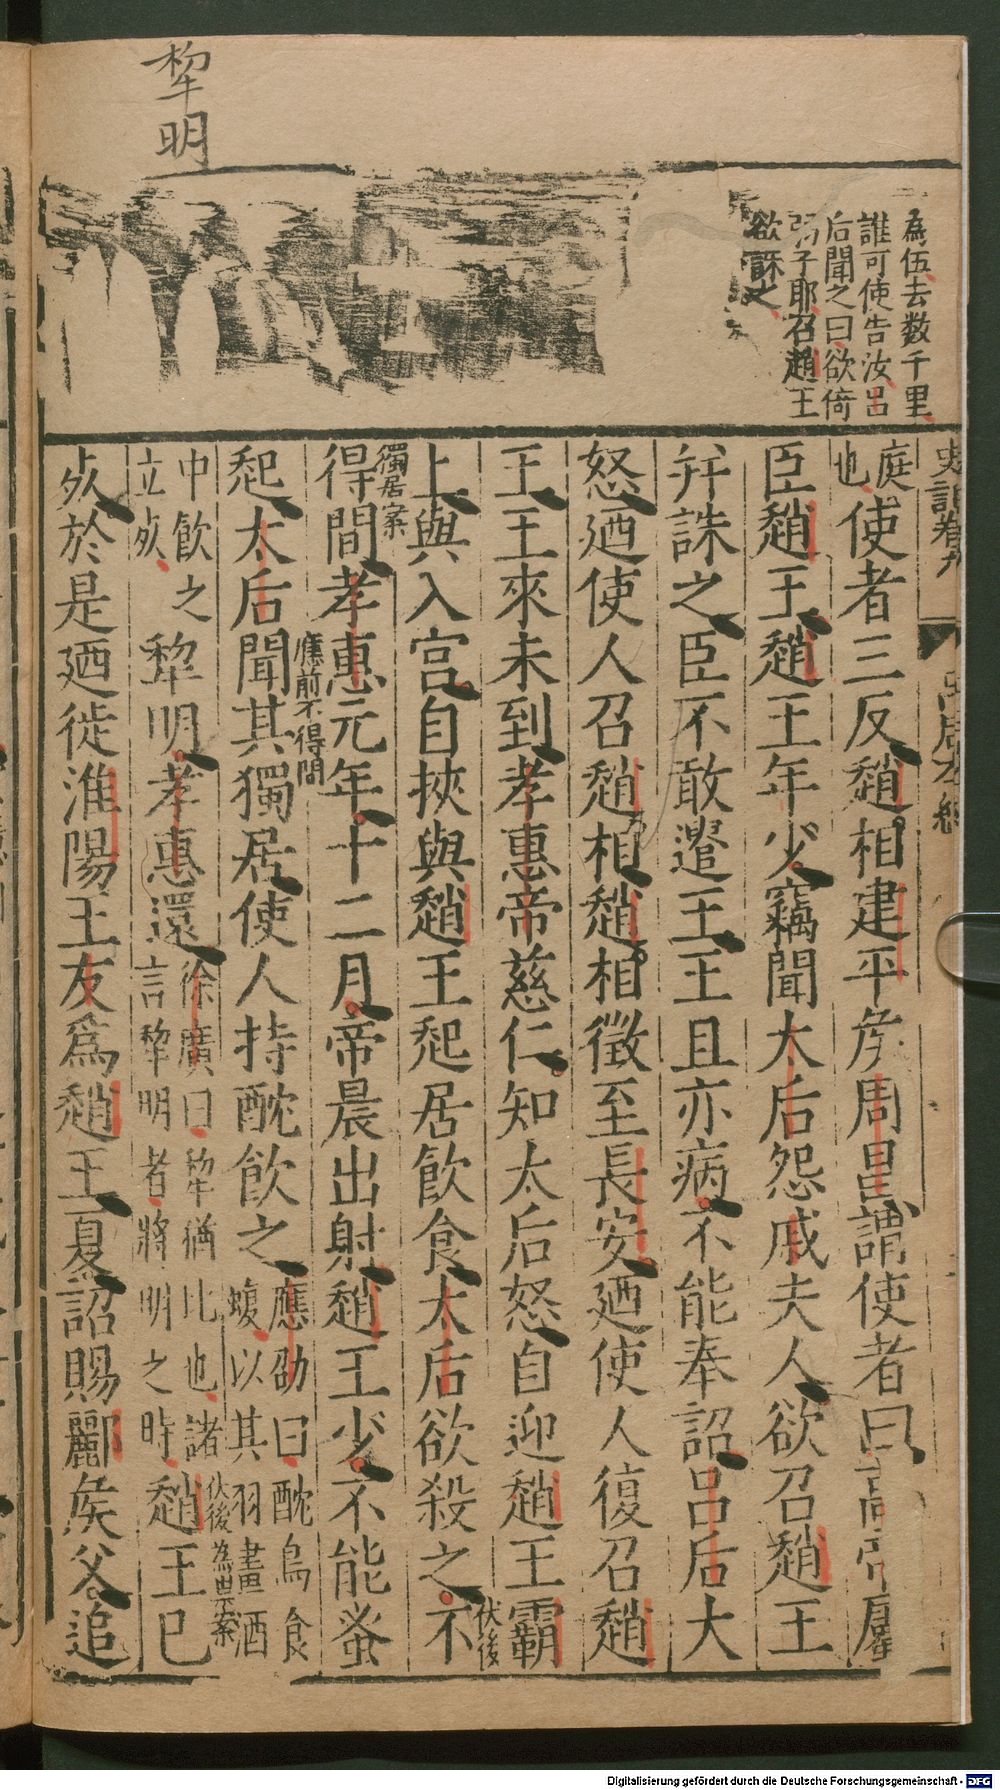 犂明
為伍去数千里
誰可使告汝吕
后聞之曰欲倚
子耶召趙王
欲誅之
史記卷九
庭
也
使者三反趙相建平矦周昌謂使者曰高帝屬
臣趙王趙王年少竊聞太后怨戚夫人欲召趙王
幷誅之臣不敢遣王王且亦病不能奉詔吕后大
怒廼使人召趙相趙相徵至長安廼使人復召趙
王王來未到孝惠帝慈仁知太后怒自迎趙王霸
伏後
上與入宫自挾與趙王起居飲食太后欲殺之不
獨居案
得間孝惠元年十二月帝晨出射趙王少不能蚤
應前不得間
起太后聞其獨居使人持酖飲之
應劭曰酖鳥食
蝮以其羽畫酒
中飲之
立死
犂明孝惠還
徐廣曰犂猶比也諸
言犂明者將明之時
趙王已
伏後
為祟案
死於是廼徙淮陽王友為趙王夏詔賜酈矦父追
Digitalisierung gefördert durch die Deutsche Forschungsgemeinschaft - DFG